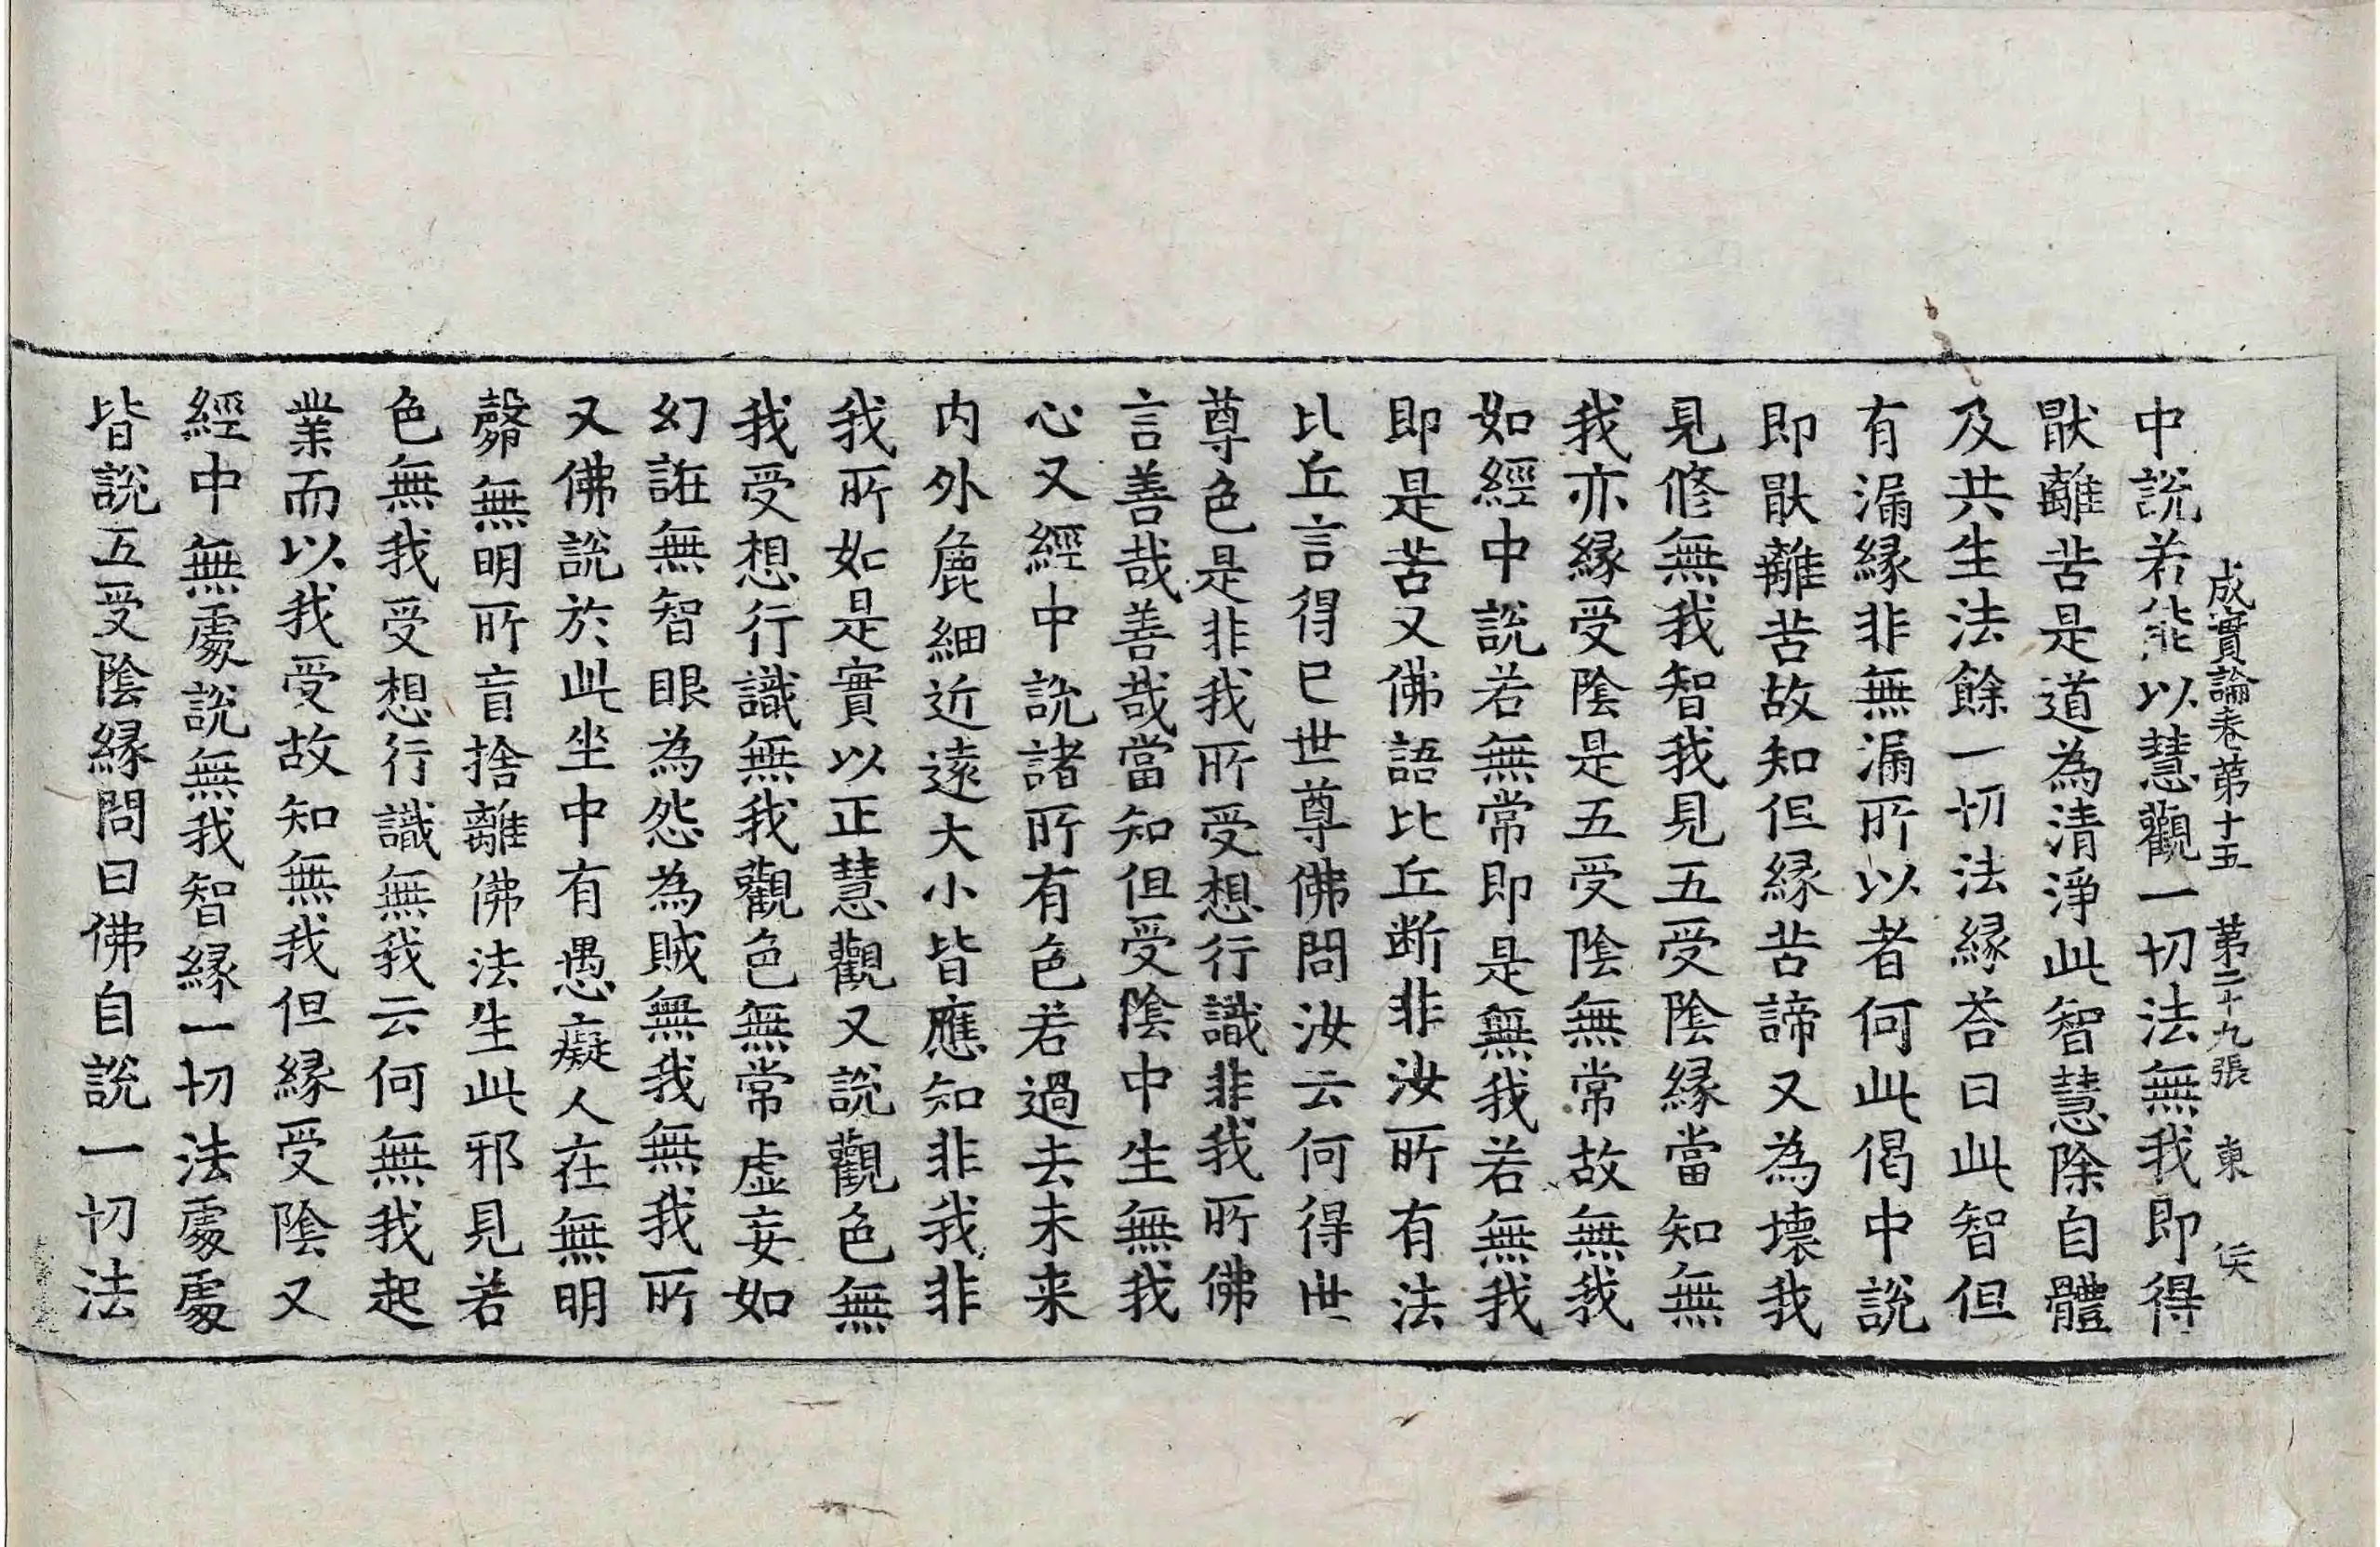 成實論卷第十五　第二十九張　東
中說若能以慧觀一切法無我即得
猒離苦是道為清淨此智慧除自體
及共生法餘一切法緣荅曰此智但
有漏緣非無漏所以者何此偈中說
即猒離苦故知但緣苦諦又為壞我
見修無我智我見五受陰緣當知無
我亦緣受陰是五受陰無常故無我
如經中說若無常即是無我若無我
即是苦又佛語比丘断非汝所有法
比丘言得已世尊佛問汝云何得世
尊色是非我所受想行識非我所佛
言善哉善哉當知但受陰中生無我
心又經中說諸所有色若過去未来
内外麁細近遠大小皆應知非我非
我所如是實以正慧觀又說觀色無
我受想行識無我觀色無常虛妄如
幻誑無智眼為怨為賊無我無我所
又佛說於此坐中有愚癡人在無明
㲉無明所盲捨離佛法生此邪見若
色無我受想行識無我云何無我起
業而以我受故知無我但緣受陰又
經中無處說無我智緣一切法處處
皆說五受陰緣問曰佛自說一切法